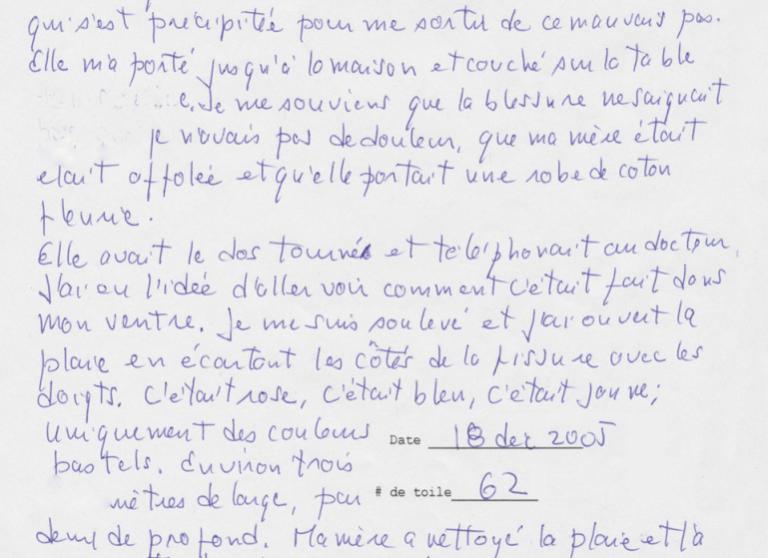 qui s'est précipitée pour me sortir de ce mauvais pas.
Elle m'a porté jusqu'à la maison et couché sur la table
e. Je me souviens que la blessure ne saignait
je n'avais pas de douleur, que ma mère était
etait affolée et qu'elle portait une robe de coton
fleurie.
Elle avait le dos tourné et téléphonait au docteur,
J'ai eu l'idée d'aller voir comment c'était fait dans
mon ventre. Je me suis soulevé et j'ai ouvert la
plaie en écartant les côtés de la fissure avec les
doigts. C'était rose, c'était bleu, c'était jaune;
uniquement des couleurs
pastels. Environ trois
mètres de large, par
Date 18 dec 2005
# de toile 62
demi de profond. Ma mère a nettoyé la plaie et l'a